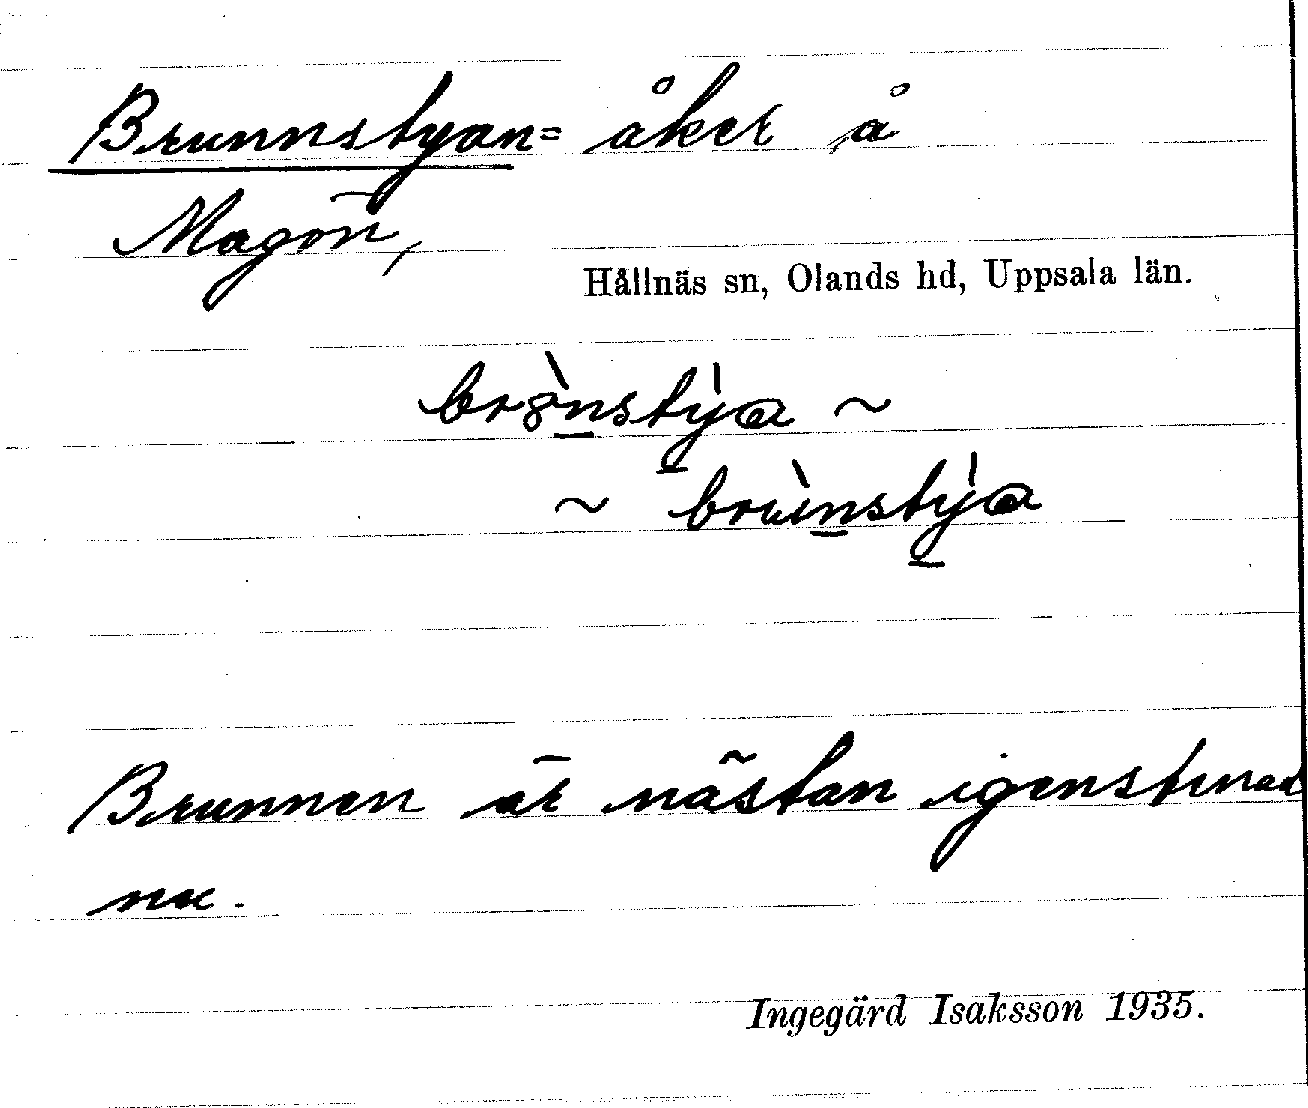 Brunnstyan = åker å
Magön,
Hållnäs sn, Olands hd, Uppsala län.
brònstỳa ~
~ brùnstỳa
Brunnen är nästan igenstenad
nu.
Ingegärd Isaksson 1935.